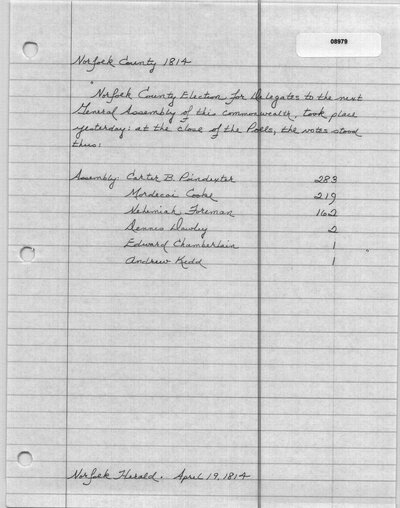 08979
Norfolk County 1814
"Norfolk County Election for Delegates to the next
General Assembly of this commonwealth, took place
yesterday: at the close of the Polls, the votes stood
thus:
Assembly: Carter B. Poindexter 283
Mordecai Cooke 219
Nehemiah Foreman 162
Dennis Dawley 2
Edward Chamberlain 1
Andrew Kidd 1 "
Norfolk Herald. April 19, 1814